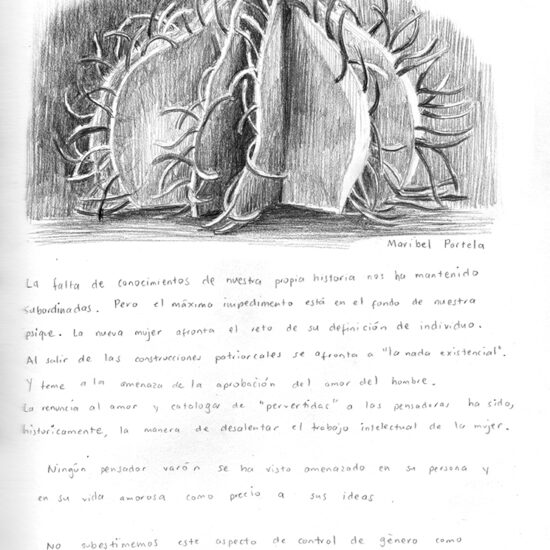 Maribel Portela
La falta de conocimientos de nuestra propia historia nos ha mantenido
subordinadas. Pero el máximo impedimento está en el fondo de nuestra
psique. La nueva mujer afronta el reto de su definición de individuo.
Al salir de las construcciones patriarcales se afronta a "la nada existencial".
Y teme a la amenaza de la aprobación del amor del hombre.
La renuncia al amor y catalogar de "pervertidas" a las pensadoras ha sido,
historicamente, la manera de desalentar el trabajo intelectual de la mujer.
Ningún pensador varón se ha visto amenazado en su persona y
en su vida amorosa como precio a sus ideas.
No subestimemos este aspecto de control de género como